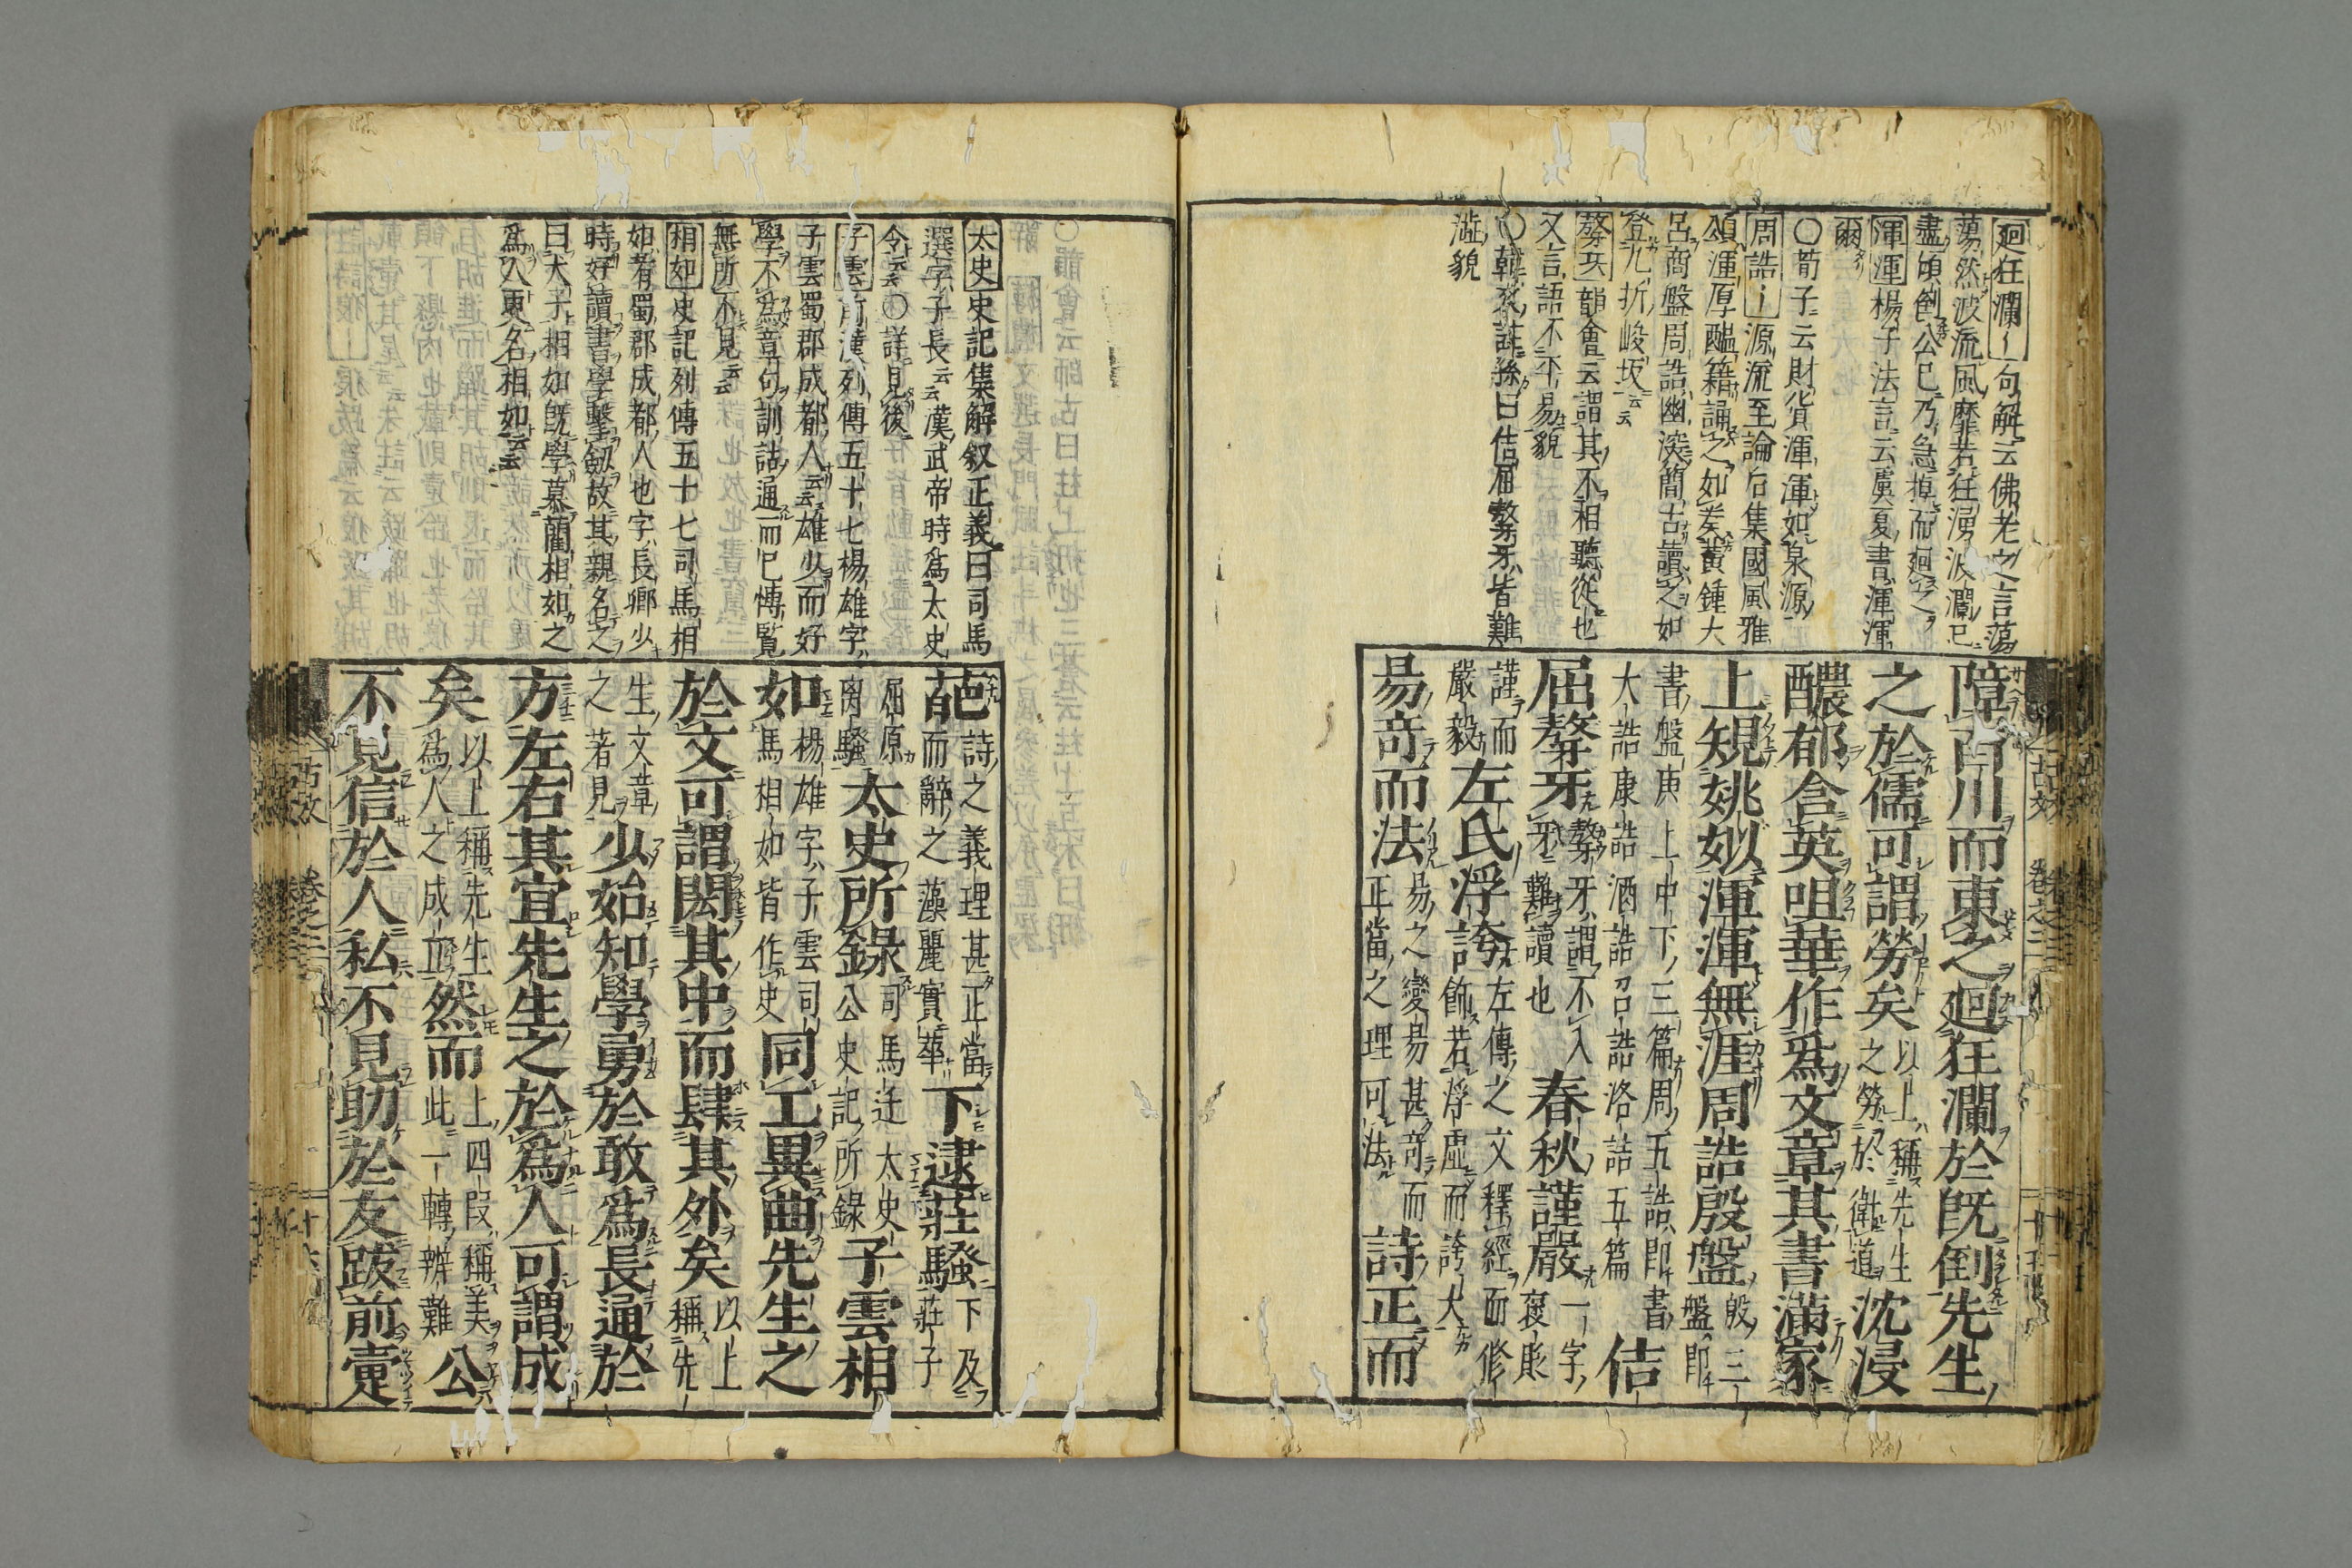 廻狂瀾｜句解云佛老之言蕩
蕩然波流風靡若狂湧波瀾已
盡頃倒公已乃急掉而廻之
渾渾楊子法言云虞夏書渾渾
爾
○荀子云財貨渾渾如泉源
周誥｜源流至論后集國風雅
頌渾厚醞籍誦之如奏黃鍾大
呂商盤周誥幽深簡古讀之如
登九折峻坂云云
聱牙韻會云謂其不相聽從也
又言語不平易貌
○韓文註孫曰佶屈聱牙皆難
澁貌
障百川而東之廻狂瀾於既倒先生
之於儒可謂勞矣以上稱先生
之勞於衛道沈浸
醲郁含英咀華作爲文章其書滿家
上規姚姒渾渾無涯周誥殷盤殷三
盤即
書盤庚上中下三篇周五誥即書
大誥康誥酒誥召誥洛誥五篇佶
屈聱牙聱牙謂不入
牙難讀也春秋謹嚴一字
褒貶
謹而左傳之文釋經而修
嚴毅左氏浮誇飾若浮虛而誇大
易奇而法易之變易甚奇而
正當之理可法詩正而
太史史記集解叙正義曰司馬
選字子長云漢武帝時爲太史
令云云○詳見後
子雲前漢列傳五十七楊雄字
子雲蜀郡成都人云云雄少而好
學不爲章句訓詁通而已博覧
無所不見云云
相如史記列傳五十七司馬相
如者蜀郡成都人也字長卿少
時好讀書學擊劒故其親名之
曰犬子相如既學慕藺相如之
爲人更名相如云云
葩詩之義理甚正當
而辭之藻麗實華下逮莊騷下及
莊子
屈原
离騷太史所錄司馬迁太史
公史記所錄子雲相
如楊雄字子雲司
馬相如皆作史同工異曲先生之
於文可謂閎其中而肆其外矣以上
稱先
生文章
之著見少始知學勇於敢爲長通於
方左右其宜先生之於爲人可謂成
矣以上稱先生
爲人之成立然而上四段稱美
此一轉辨難公
不見信於人私不見助於友跋前疐
古文
卷之二